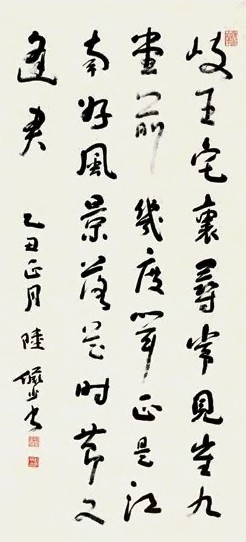 岐王宅裏尋常見崔九
堂前幾度聞正是江
南好風景落花時節又
逢君 乙丑正月陸儼少書